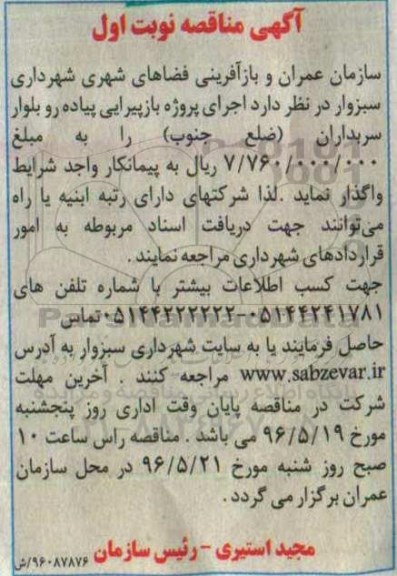 آگهی مناقصه نوبت اول
سازمان عمران و بازآفرینی فضاهای شهری شهرداری
سبزوار در نظر دارد اجرای پروژه بازپیرایی پیاده رو بلوار
سربداران (ضلع جنوب) را به مبلغ
۷/۷۶۰/۰۰۰/۰۰۰ ریال به پیمانکار واجد شرایط
واگذار نماید .لذا شرکتهای دارای رتبه ابنیه یا راه
می‌توانند جهت دریافت اسناد مربوطه به امور
قراردادهای شهرداری مراجعه نمایند .
جهت کسب اطلاعات بیشتر با شماره تلفن های
۰۵۱۴۴۲۴۱۷۸۱-۰۵۱۴۴۲۲۲۲۲۲ تماس
حاصل فرمایند یا به سایت شهرداری سبزوار به آدرس
www.sabzevar.ir مراجعه کنند . آخرین مهلت
شرکت در مناقصه پایان وقت اداری روز پنجشنبه
مورخ ۹۶/۵/۱۹ می باشد . مناقصه راس ساعت ۱۰
صبح روز شنبه مورخ ۹۶/۵/۲۱ در محل سازمان
عمران برگزار می گردد .
مجید استیری - رئیس سازمان
۹۶۰۸۷۸۷۶/ش